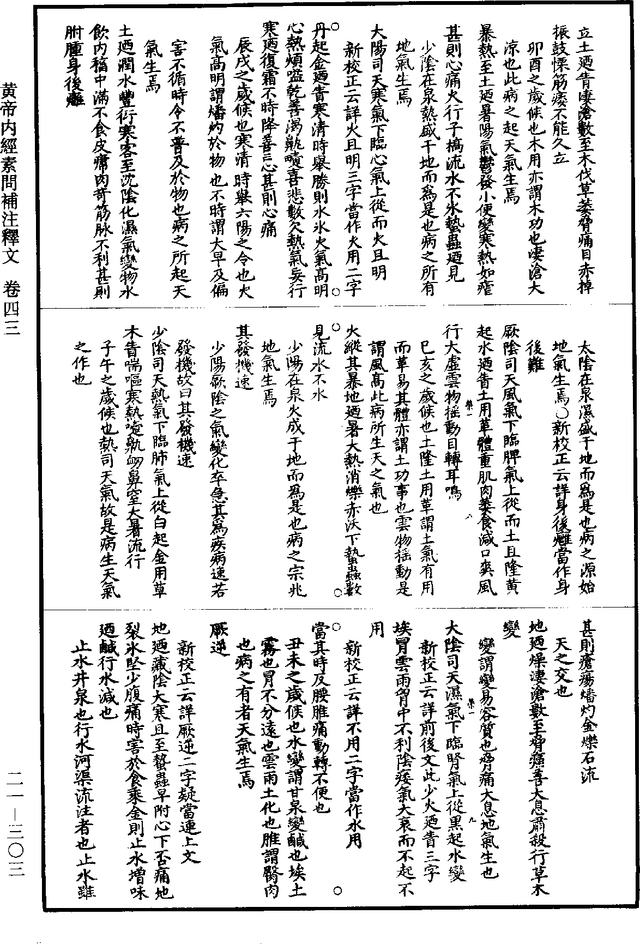 立土廼眚凄滄數至木伐草萎脅痛目赤掉
振鼓慄筋痿不能久立
卯酉之歲候也木用亦謂木功也凄滄大
涼也此病之起天氣生焉
暴熱至土廼暑陽氣鬱發小便變寒熱如瘧
甚則心痛火行于槁流水不氷蟄蟲廼見
少陰在泉熱盛于地而爲是也病之所有
地氣生焉
大陽司天寒氣下臨心氣上從而火且明
新校正云詳火且明三字當作火用二字
丹起金廼眚寒清時舉勝則水氷火氣高明
心熱煩嗌乾善渴鼽嚏喜悲數欠熱氣妄行
寒廼復霜不時降善忘甚則心痛
辰戌之歲候也寒清時舉六陽之令也火
氣高明謂燔灼於物也不時謂大早及偏
害不循時令不普及於物也病之所起天
氣生焉
土廼潤水豐衍寒客至沈陰化濕氣變物水
飲內稸中滿不食皮𤸷肉苛筋脉不利甚則
胕腫身後癰
太陰在泉濕盛于地而爲是也病之源始
地氣生焉○新校正云詳身後癰當作身
後難
厥陰司天風氣下臨脾氣上從而土且隆黃
起水廼眚土用革體重肌肉萎食減口爽風
行大虛雲物揺動目轉耳鳴
巳亥之歲候也土隆土用革謂土氣有用
而革易其體亦謂土功事也雲物揺動是
謂風高此病所生天之氣也
火縱其暴地廼暑大熱消爍赤沃下蟄蟲數
見流水不氷
少陽在泉火盛于地而爲是也病之宗兆
地氣生焉
其發機速
少陽厥陰之氣變化卒急其爲疾病速若
發機故曰其發機速
少陰司天熱氣下臨肺氣上從白起金用草
木眚喘嘔寒熱嚏鼽衂鼻窒大暑流行
子午之歲候也熱司天氣故是病生天氣
之作也
甚則瘡瘍燔灼金爍石流
天之交也
地廼燥凄滄數至脅痛善大息肅殺行草木
變
變謂變易容質也脅痛大息地氣生也
大陰司天濕氣下臨腎氣上從黑起水變
新校正云詳前後文此少火廼眚三字
埃冒雲雨胷中不利陰痿氣大衰而不起不
用
新校正云詳不用二字當作水用
當其時反腰脽痛動轉不便也
丑未之歲候也水變謂甘泉變鹹也埃土
霧也冒不分遠也雲雨土化也脽謂臀肉
也病之有者天氣生焉
厥逆
新校正云詳厥逆二字疑當連上文
地廼藏陰大寒且至蟄蟲早附心下否痛地
裂氷堅少腹痛時害於食乘金則止水增味
廼鹹行水減也
止水井泉也行水河渠流注者也止水雖
黃帝內經素問補注釋文　卷四三
二一—三〇三